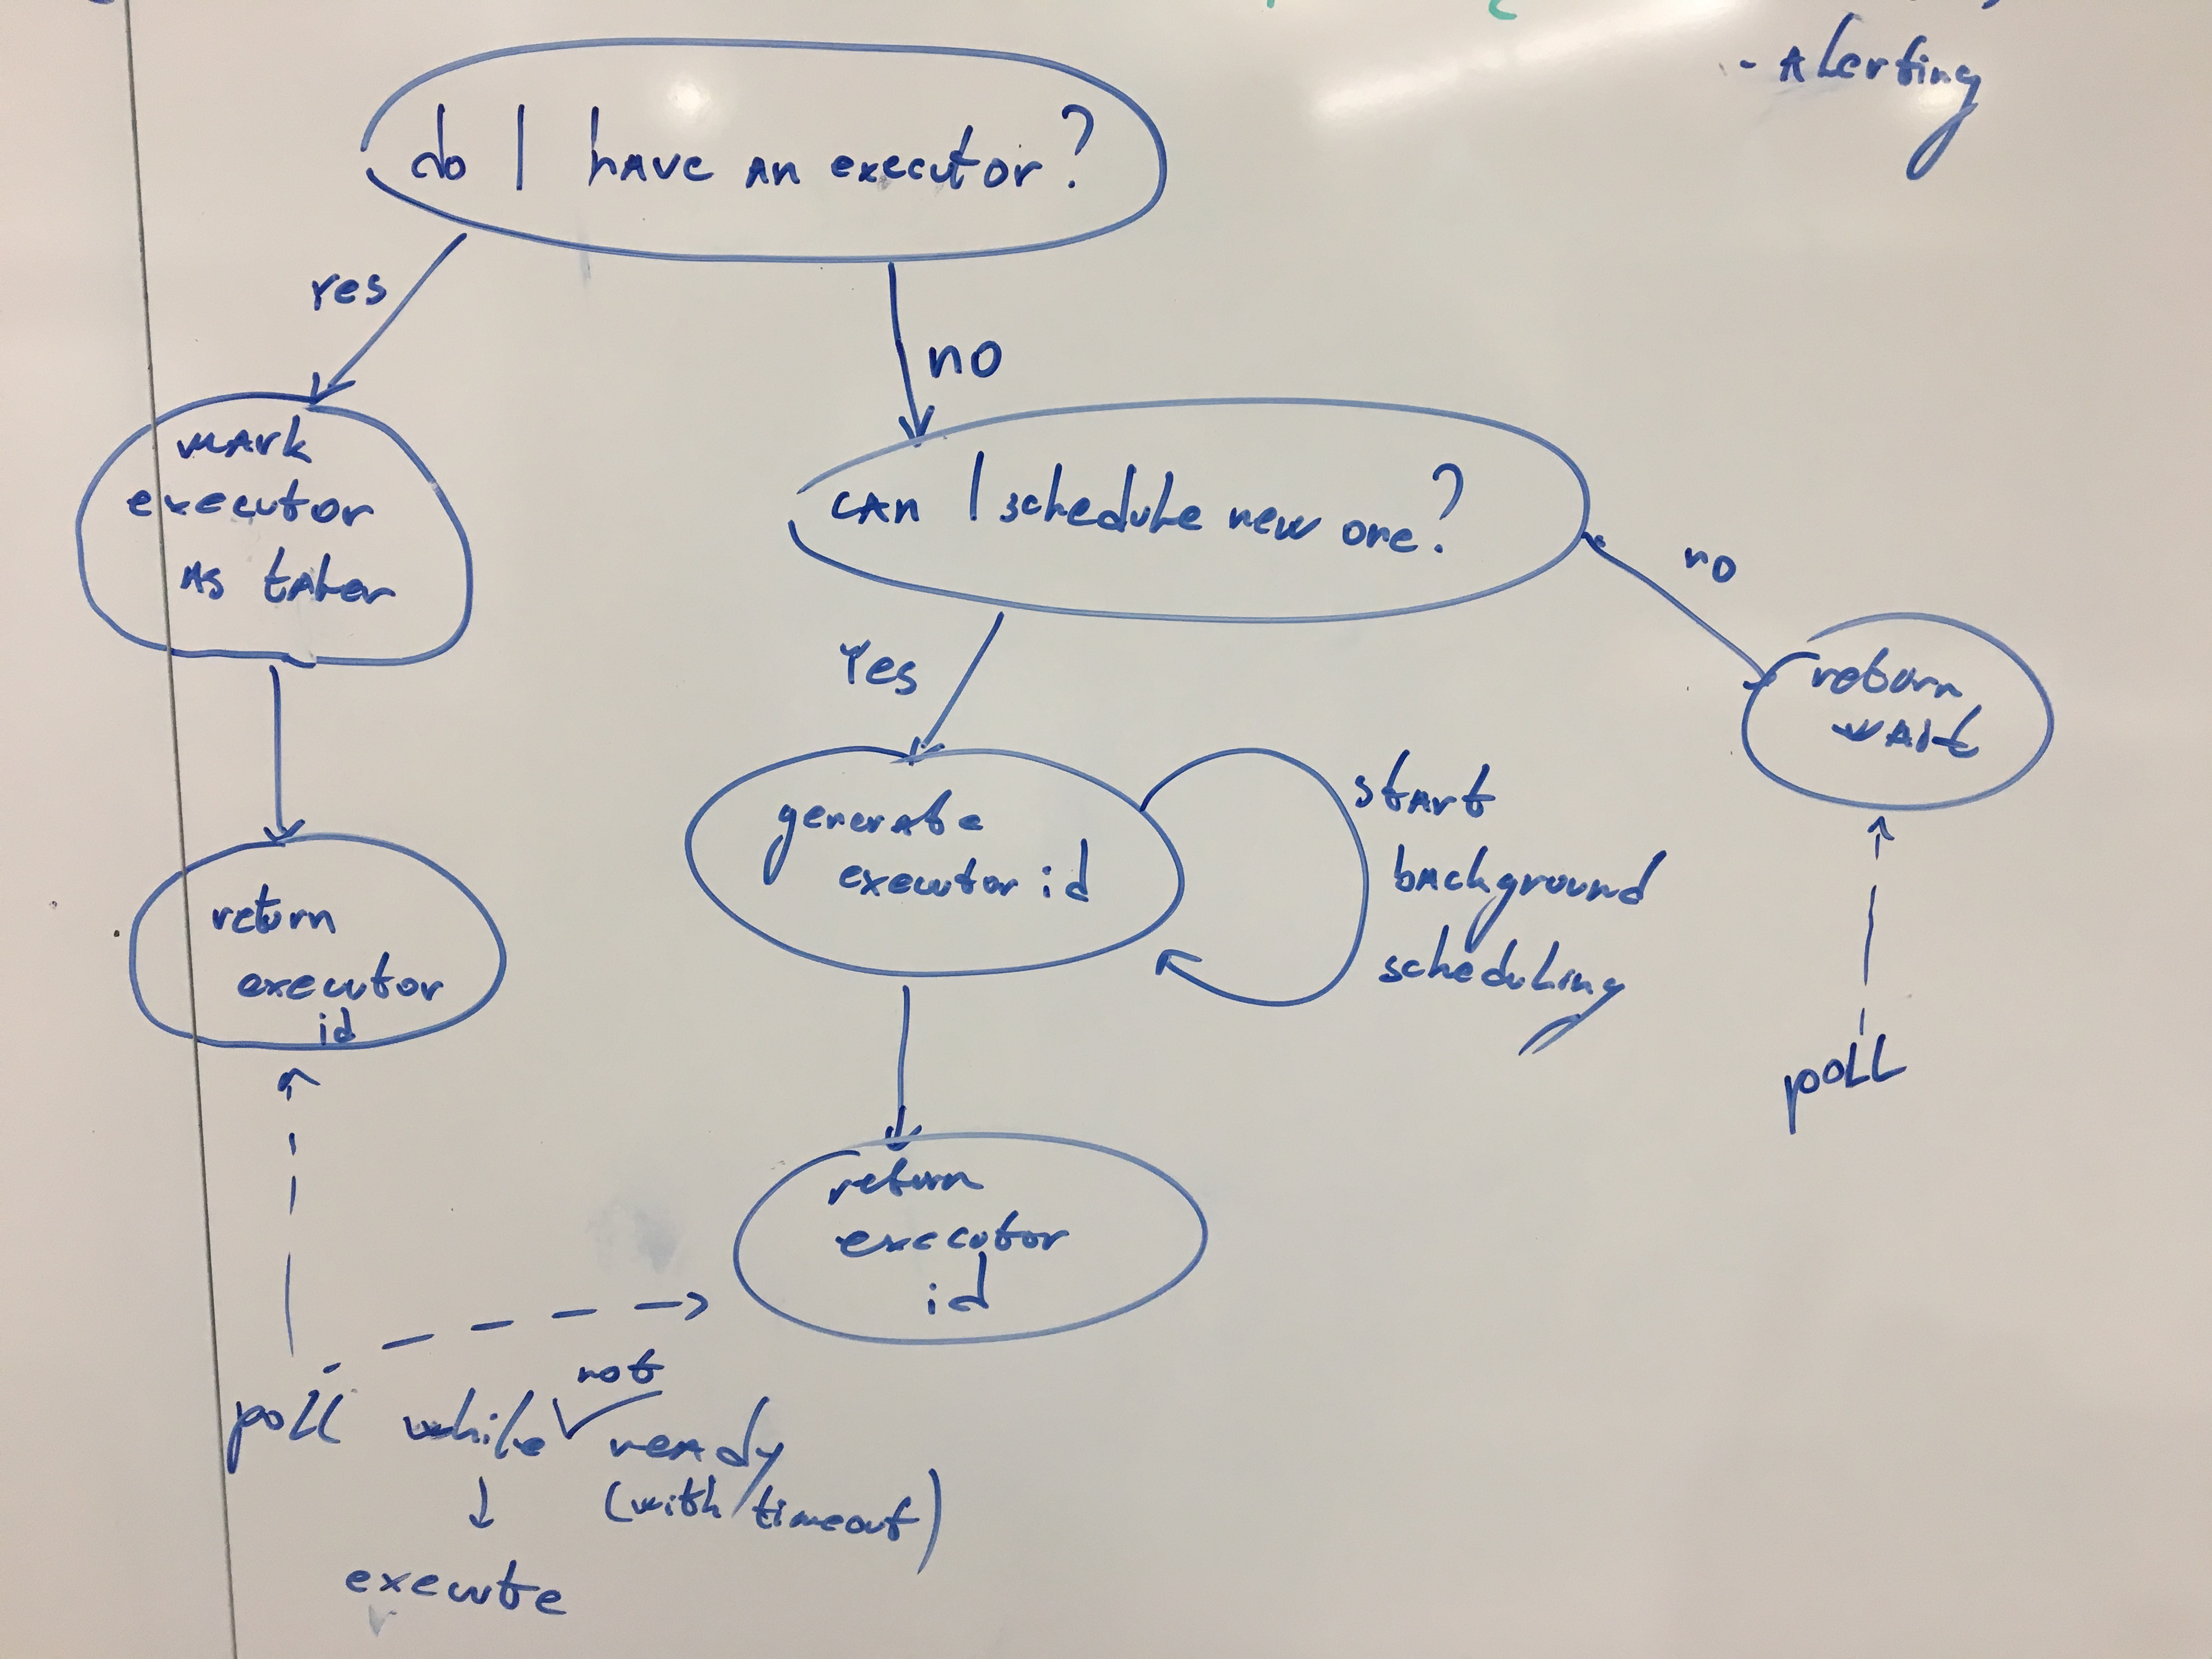 - Alerting
do I have an executor?
yes
no
mark
executor
as taken
can I schedule new one?
no
Yes
return
wait
generate
executor id
start
background
scheduling
return
executor
id
poll
return
executor
id
not
poll while ready
(with timeout)
execute